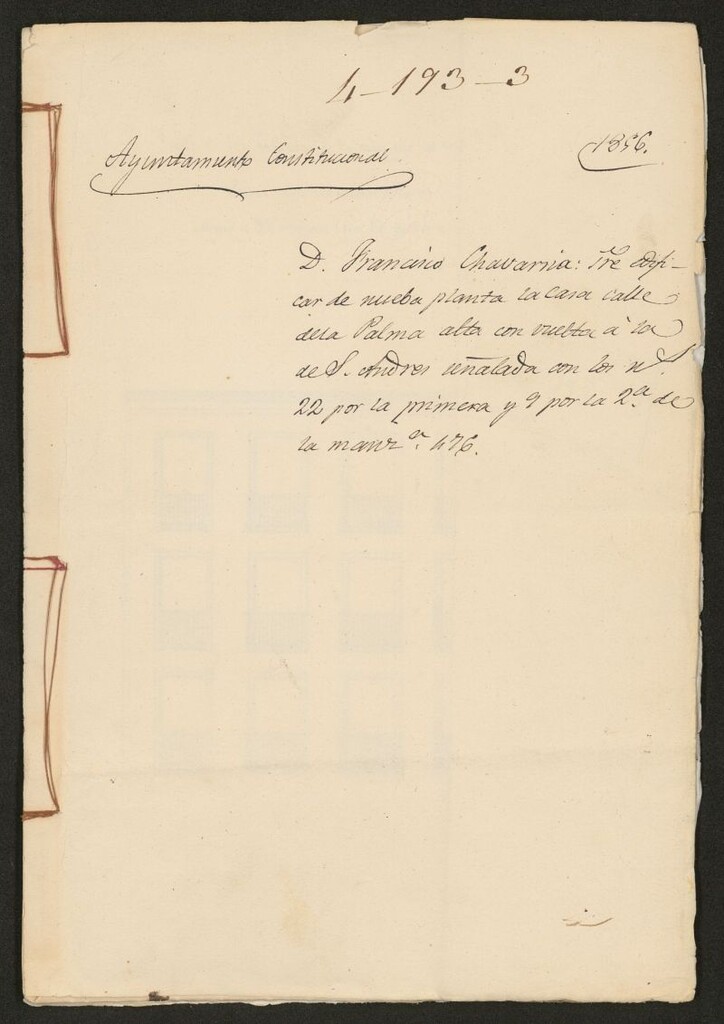 4-193-3
Ayuntamiento Constitucional
1856.
D. Francisco Chavarria: Sre edifi-
car de nueba planta la casa calle
dela Palma alta con vuelta à la
de S. Andres señalada con los nº.
22 por la primera y 9 por la 2.ª de
la manz.ª 476.